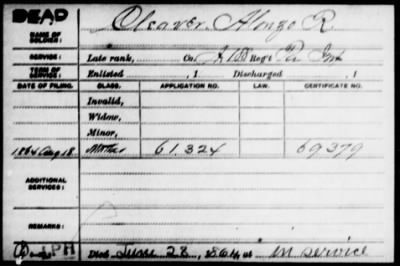 DEAD
NAME OF SOLDIER: Cleaver, Alonzo R.
SERVICE: Late rank, Co. Reg't Pa Inf
TERM OF SERVICE: Enlisted , 1 Discharged , 1
DATE OF FILING. CLASS. APPLICATION NO. LAW. CERTIFICATE NO.
Invalid,
Widow,
Minor,
1864 Aug 18 Mother 61.324 69379
ADDITIONAL SERVICES:
REMARKS:
Died June 28, 1864, at in service